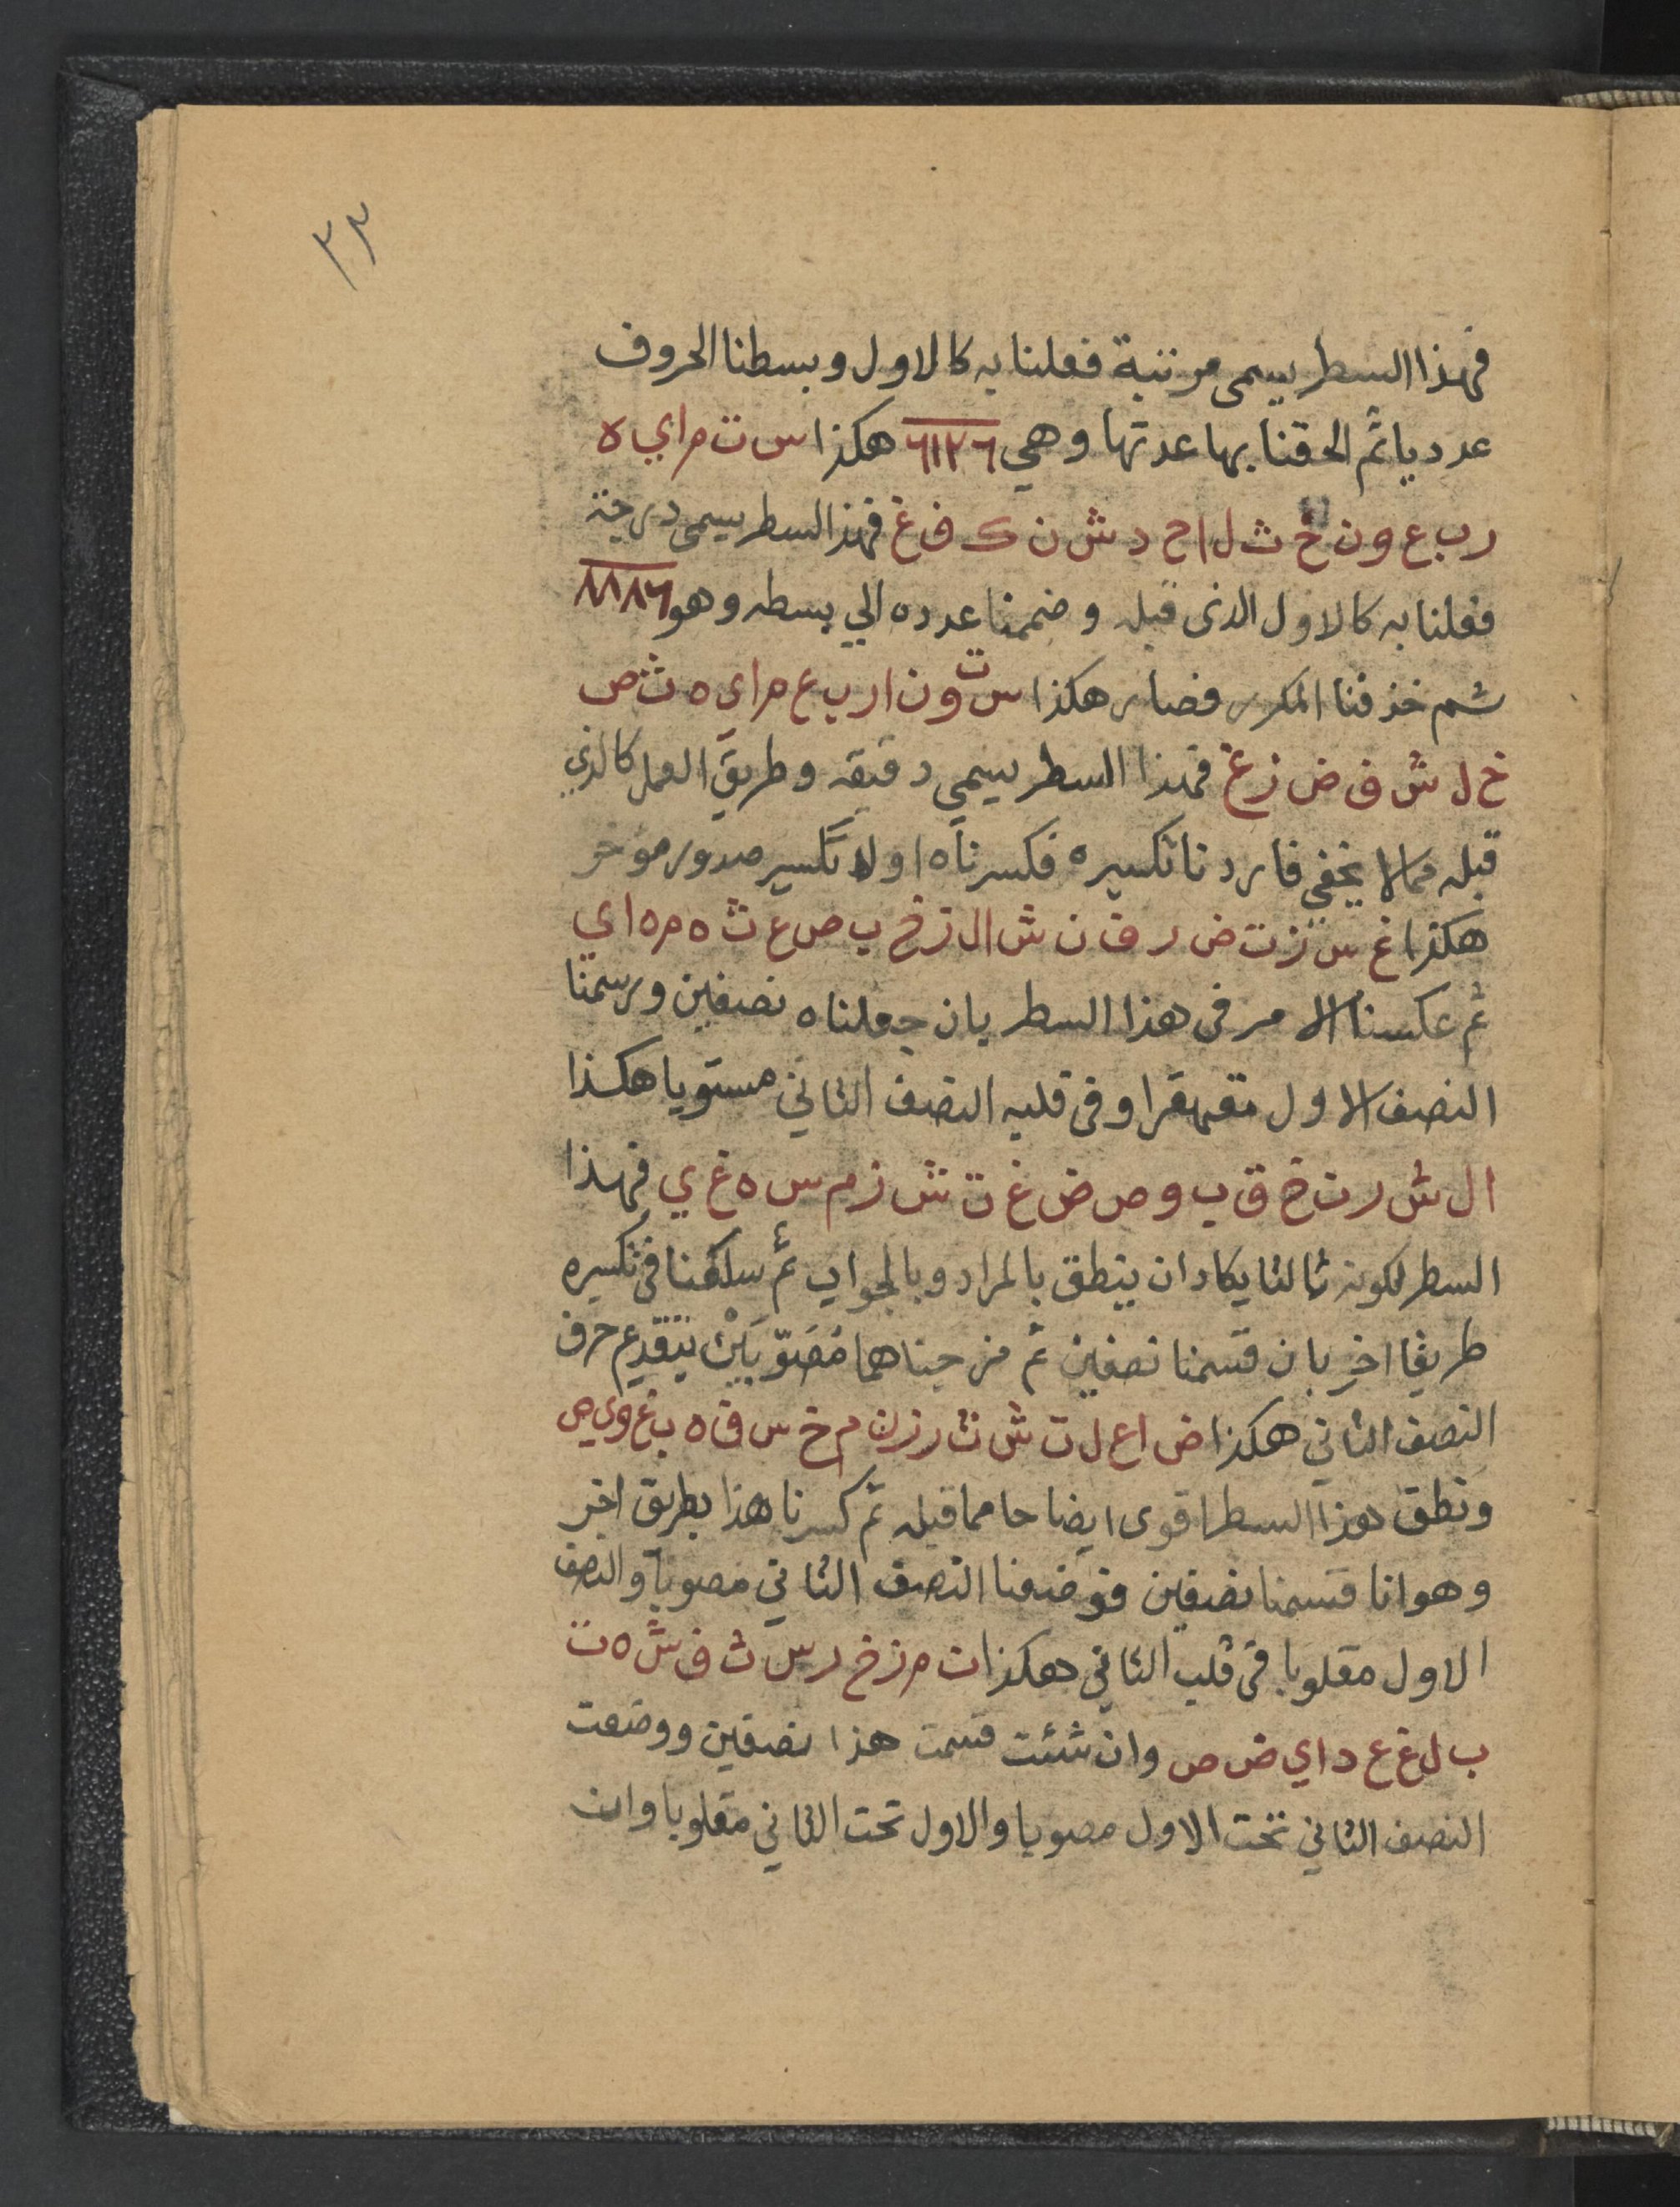 ٣٣
فهذا السطر يسمى مرتبة ففعلنا به كالاول وبسطنا الحروف
عدديا ثم الحقنا بها عدتها وهي ٦١٢٦ هكذا س ت م ا ي ه
ر ب ع و ن خ ث ل ا ح د ش ن ك ف غ فهذا السطر يسمى درجة
ففعلنا به كالاول الذى قبله وضممنا عدده الي بسطه وهو ٨٨٨٦
ثم خذفنا المكرر فصار هكذا س ت و ن ا ر ب ع م ا ي ه ث ص
خ ل ش ق ض ز غ فهذا السطر يسمي دقيقه وطريق العمل كالذي
قبله مما لا يخفي فاردنا تكسيره فكسرناه اولا تكسير صدور موخر
هكذا غ س ز ت ض ر ق ن ش ا ل ز خ ب ص ع ث ه م ه ا ي
ثم عكسنا الامر فى هذا السطر بان جعلناه نصفين ورسمنا
النصف الاول متقهقرا وفى قلبه النصف الثاني مستويا هكذا
ا ل ش ر ن خ ق ب و ص ض غ ت ش ز م س ه غ ي فهذا
السطر لكونه ثالثا يكاد ان ينطق بالمراد وبالجواب ثم سلكنا فى تكسيره
طريقا اخر بان قسمنا نصفين ثم مزجناهما مُصَوّبَيْن بتقديم حرف
النصف الثاني هكذا ض ا ع ل ت ش ث ر ز ن م خ س ق ه ب غ و ي ص
ونطق هذا السطر اقوى ايضاحا مما قبله ثم كسرنا هذا بطريق اخر
وهو انا قسمنا نصفين فوضعنا النصف الثاني مصوبا والنصف
الاول مقلوبا فى قلب الثاني هكذا ن م ز خ ر س ث ق ش ه ت
ب ل غ ع د ا ي ض ص وان شئت قسمت هذا نصفين ووضعت
النصف الثاني تحت الاول مصوبا والاول تحت الثاني مقلوبا وان